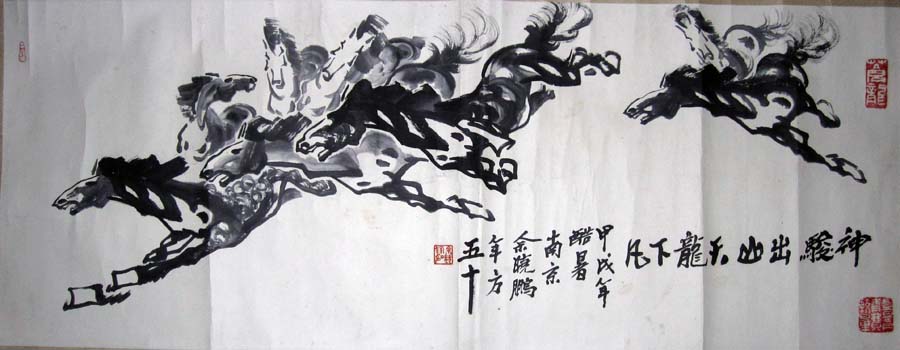 神駿出山天龍下凡
甲戌年
酷暑
南京
余曉鵬
年方
五十